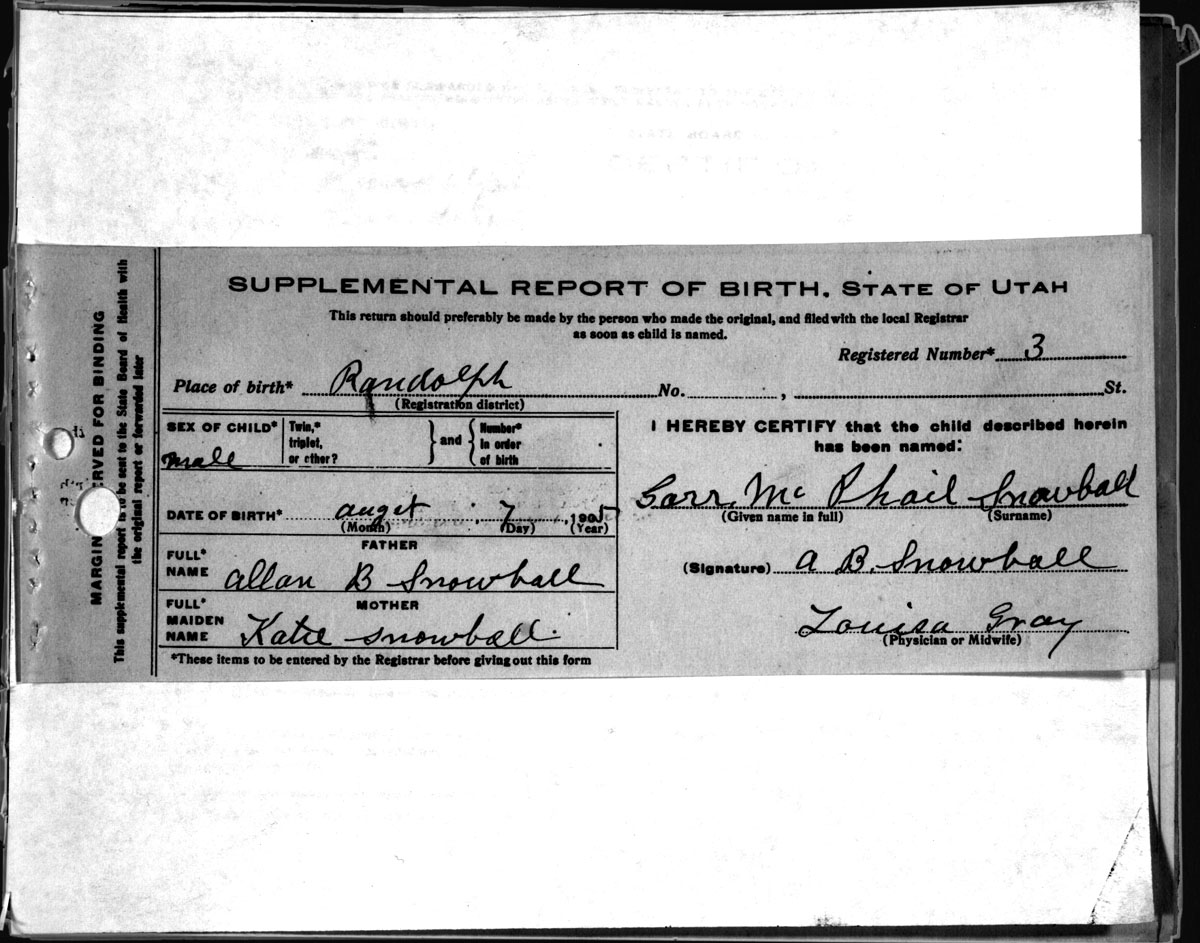 SUPPLEMENTAL REPORT OF BIRTH. STATE OF UTAH
This return should preferably be made by the person who made the original, and filed with the local Registrar
as soon as child is named.
Registered Number* 3
Place of birth* Randolph No. , St.
(Registration district)
SEX OF CHILD* male
Twin,* triplet, or other?
and
Number* in order of birth
DATE OF BIRTH* augst 7 1905
(Month) (Day) (Year)
FATHER
FULL* NAME allan B Snowball
MOTHER
FULL* MAIDEN NAME Katie snowball.
*These items to be entered by the Registrar before giving out this form
I HEREBY CERTIFY that the child described herein
has been named:
Garr Mc Phail Snowball
(Given name in full) (Surname)
(Signature) a B. Snowball
Louisa Gray
(Physician or Midwife)
MARGIN RESERVED FOR BINDING
This supplemental report is to be sent to the State Board of Health with
the original report or forwarded later